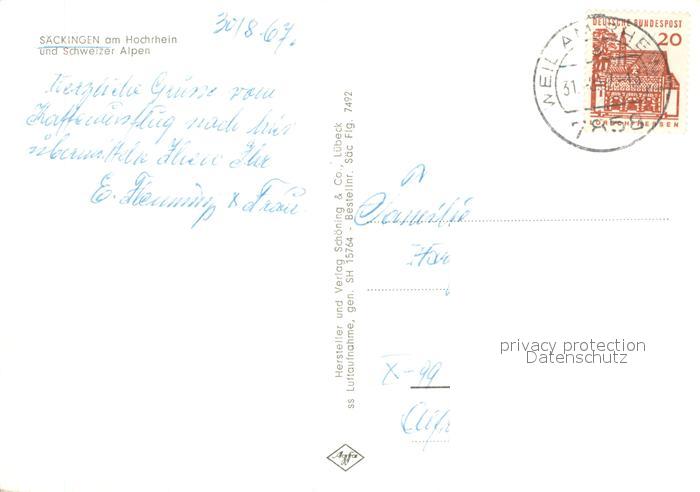 30/8.67.
SÄCKINGEN am Hochrhein
und Schweizer Alpen
Herzliche Grüsse vom
Kaffeeausflug nach hier
übermitteln Ihnen Ihre
E. Henning & Frau
Hersteller und Verlag Schöning & Co., Lübeck
ss Luftaufnahme, gen. SH 15764 - Bestellnr. Säc Flg. 7492
DEUTSCHE BUNDESPOST
20
WEIL AM RHEIN
31.
7858
Familie
X-99
privacy protection
Datenschutz
Agfa